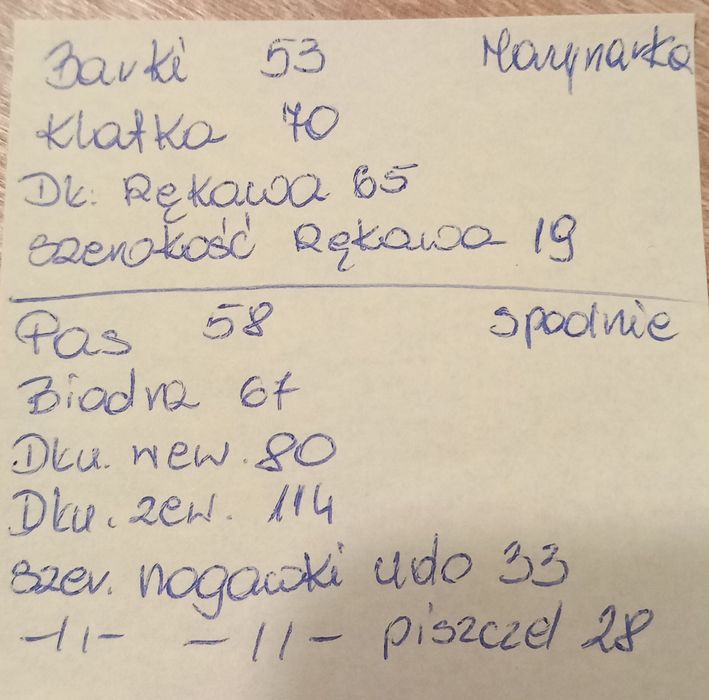 Barki 53 Marynarka
Klatka 70
Dł. Rękawa 65
szerokość Rękawa 19
Pas 58 spodnie
Biodra 67
Dłu. wew. 80
Dłu. zew. 114
szer. nogawki udo 33
-||- -||- piszczel 28